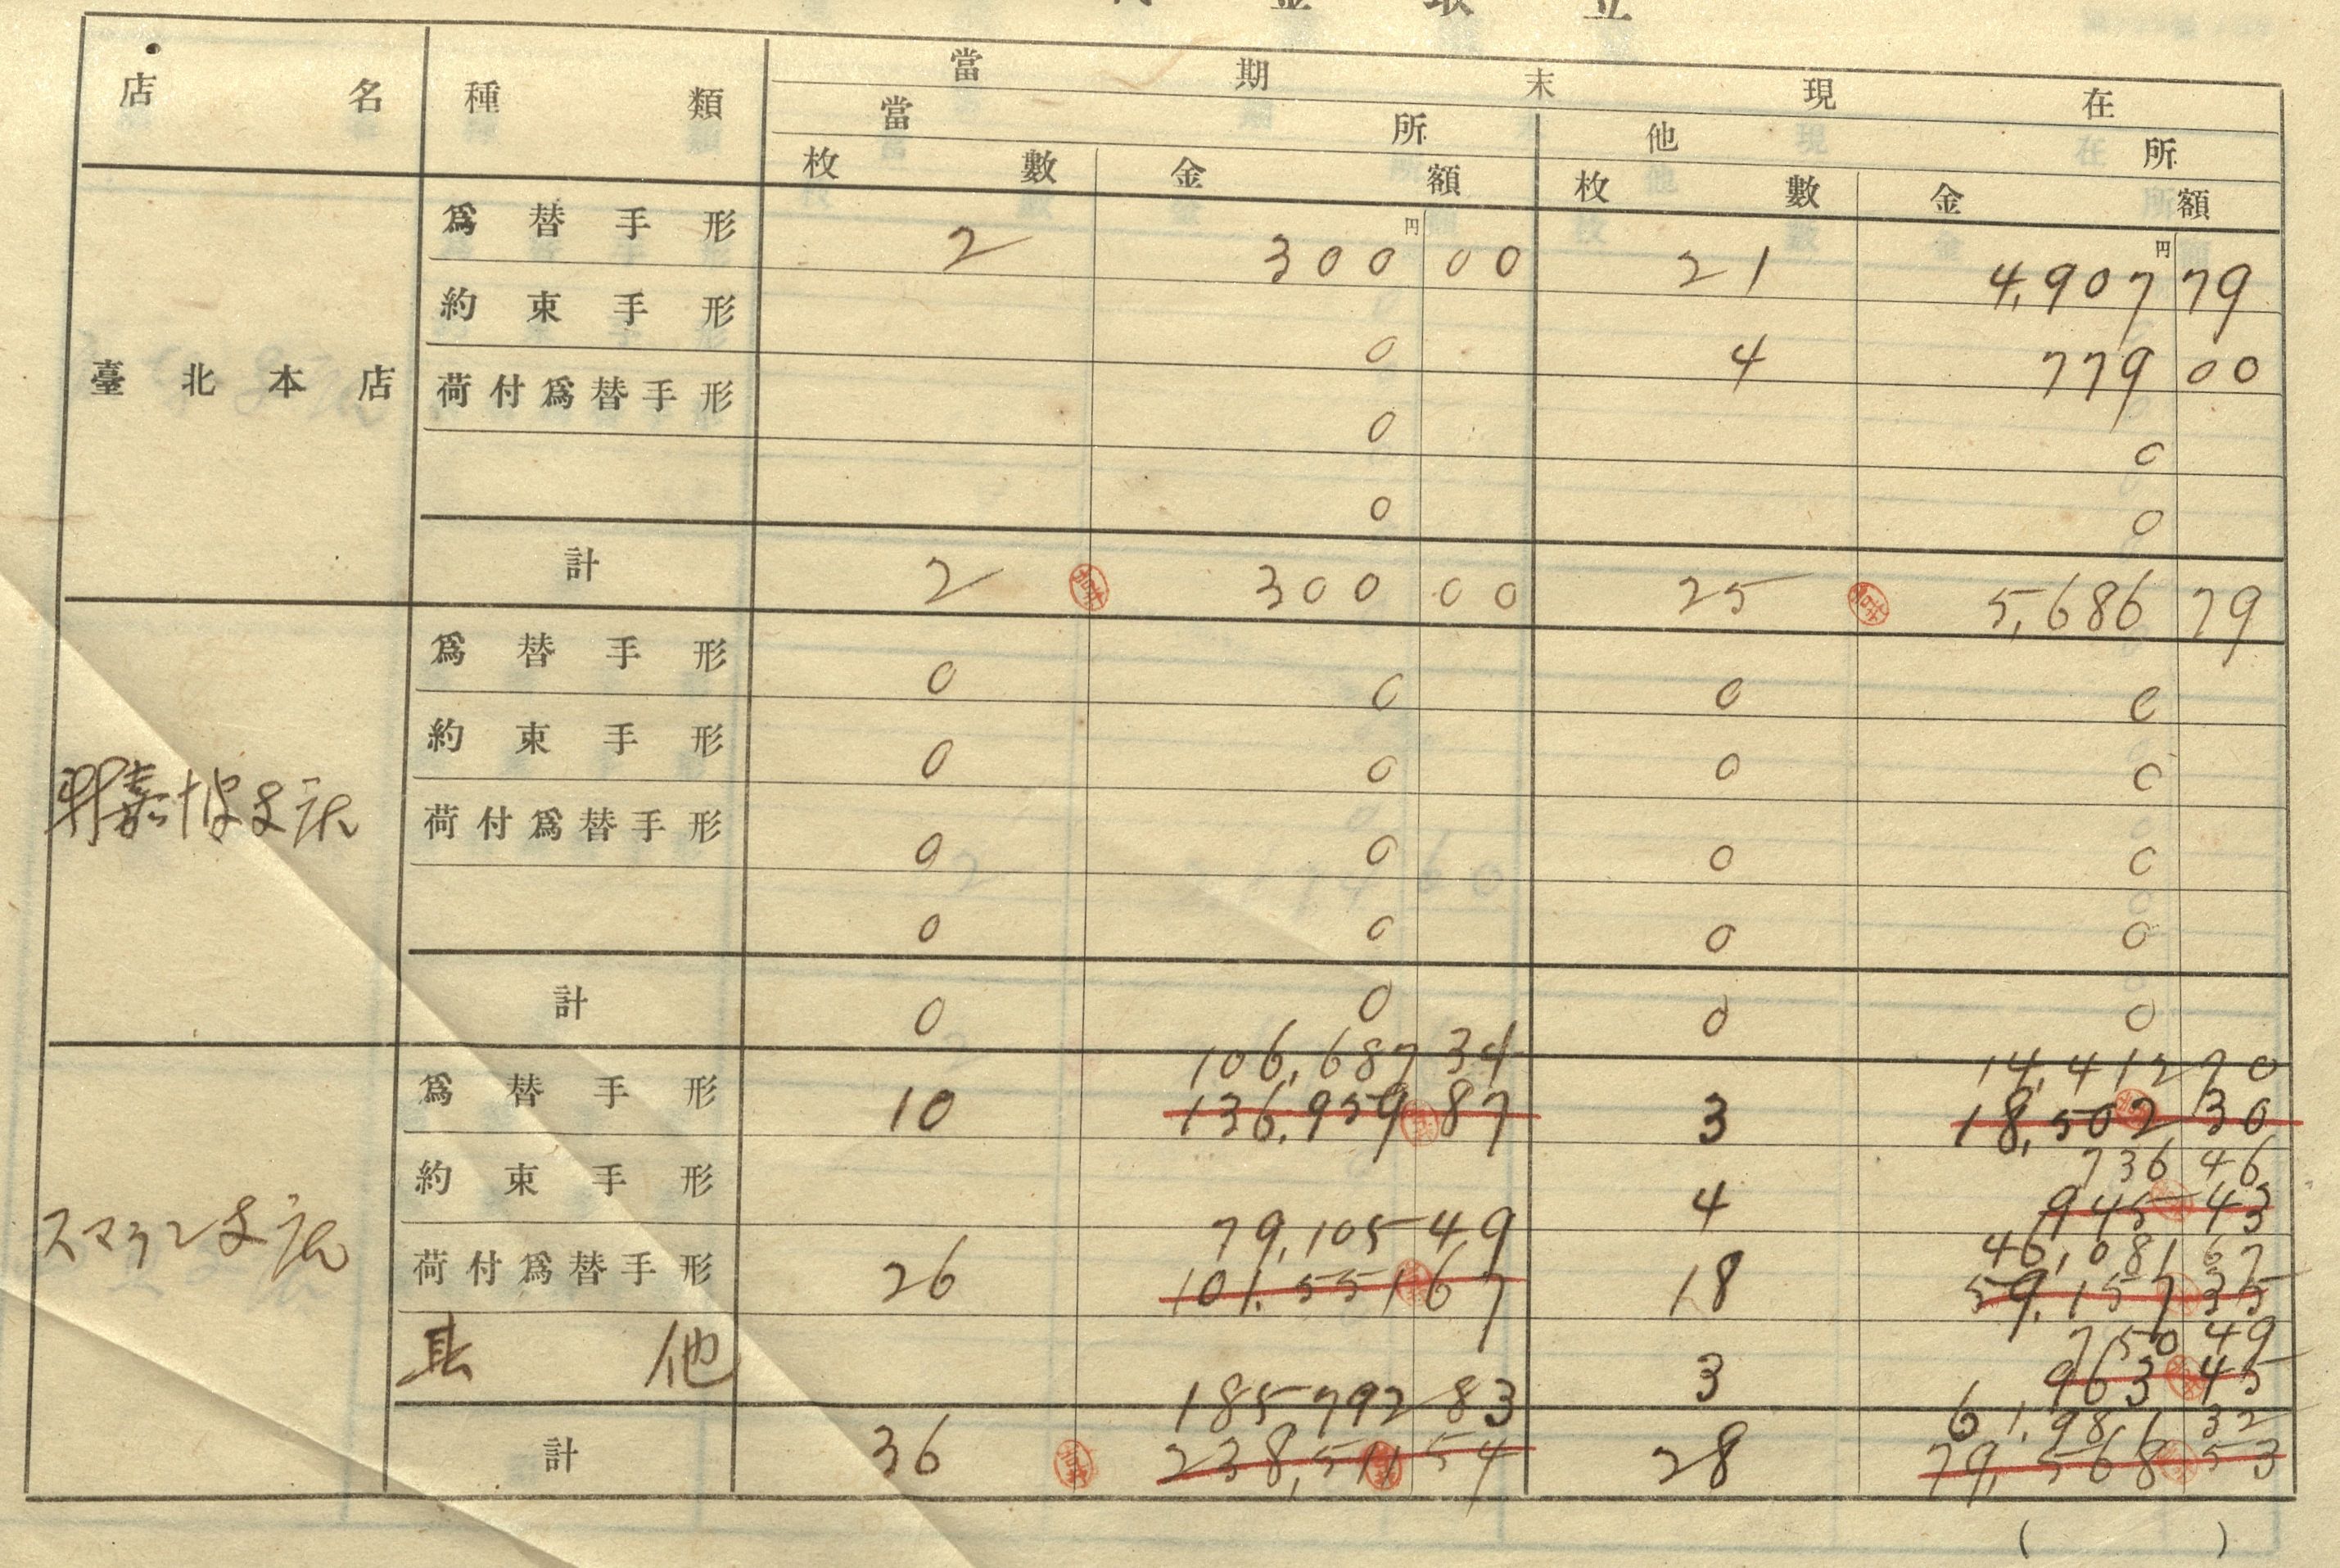 金 取 立
店名 種類 當期末現在
當所 他所
枚數 金額 枚數 金額
臺北本店
爲替手形 2 300円00 21 4,907円79
約束手形 0 4 779 00
荷付爲替手形 0 0
0 0
計 2 300 00 25 5,686 79
新嘉坡支店
爲替手形 0 0 0 0
約束手形 0 0 0 0
荷付爲替手形 0 0 0 0
0 0 0 0
計 0 0 0 0
スマラン支店
106,687 34 14,412 70
爲替手形 10 136,959 87 3 18,502 30
736 46
約束手形 4 945 43
79,105 49 46,081 67
荷付爲替手形 26 101,551 67 18 59,157 35
750 49
其他 3 963 45
185792 83 61,981 32
計 36 238,511 54 28 79,568 53
( )